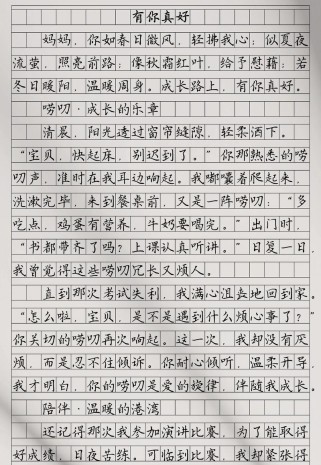 有你真好
妈妈，你如春日微风，轻拂我心；似夏夜
流萤，照亮前路；像秋霜红叶，给予慰藉；若
冬日暖阳，温暖周身。成长路上，有你真好。
唠叨·成长的乐章
清晨，阳光透过窗帘缝隙，轻柔洒下。
“宝贝，快起床，别迟到了。”你那熟悉的唠
叨声，准时在我耳边响起。我嘟囔着爬起来，
洗漱完毕，来到餐桌前，又是一阵唠叨：“多
吃点，鸡蛋有营养，牛奶要喝完。”出门时，
“书都带齐了吗？上课认真听讲。”日复一日，
我曾觉得这些唠叨冗长又烦人。
直到那次考试失利，我满心沮丧地回到家。
“怎么啦，宝贝，是不是遇到什么烦心事了？”
你关切的唠叨再次响起。这一次，我却没有厌
烦，而是忍不住倾诉。你耐心倾听，温柔开导，
我才明白，你的唠叨是爱的旋律，伴随我成长。
陪伴·温暖的港湾
还记得那次我参加演讲比赛，为了能取得
好成绩，日夜苦练。可临到比赛，我却紧张得